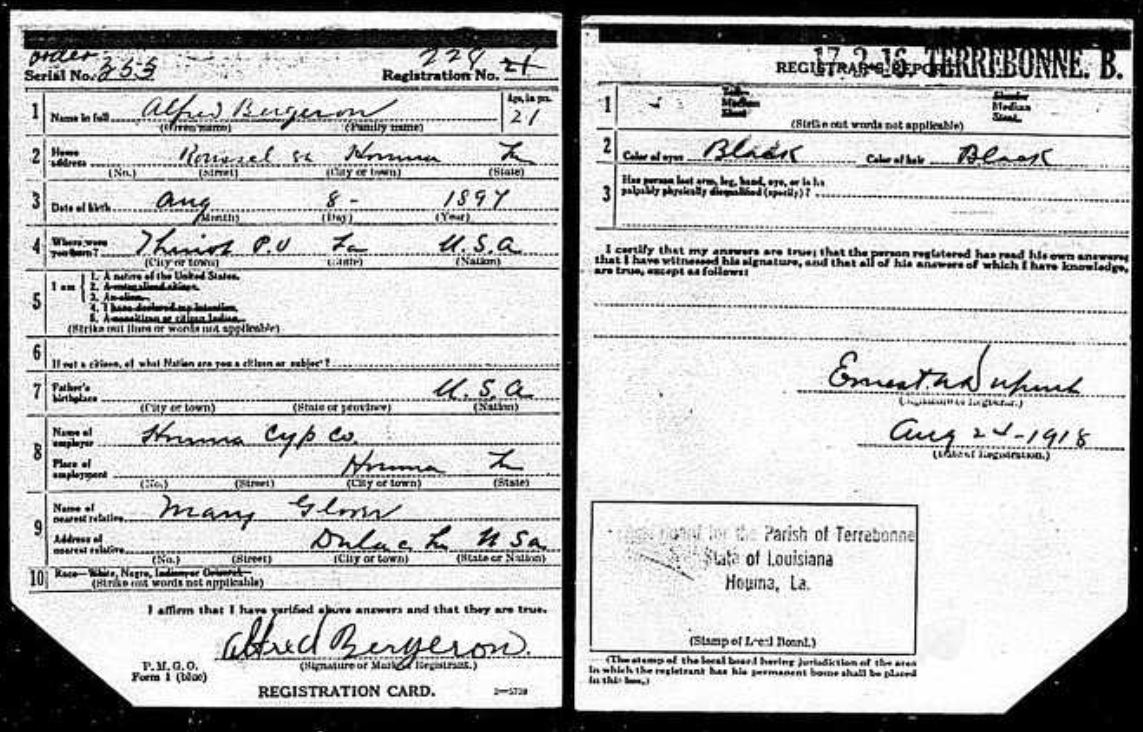 order 224
Serial No. 355 Registration No. 21
1 Name in full Alfred Bergeron Age, in yrs. 21
(Given name) (Family name)
2 Home address Roussel St Houma La
(No.) (Street) (City or town) (State)
3 Date of birth Aug 8 - 1897
(Month) (Day) (Year)
4 Where were you born? P.O La U.S.A
(City or town) (State) (Nation)
5 I am 1. A native of the United States.
2. A naturalized citizen.
3. An alien.
4. I have declared my intention.
5. A noncitizen or citizen Indian.
(Strike out lines or words not applicable)
6 If not a citizen, of what Nation are you a citizen or subject?
7 Father's birthplace U.S.A.
(City or town) (State or province) (Nation)
8 Name of employer Houma Cyp Co.
Place of employment Houma La
(No.) (Street) (City or town) (State)
9 Name of nearest relative Mary Glover
Address of nearest relative Dulac La U Sa
(No.) (Street) (City or town) (State or Nation)
10 Race—White, Negro, Indian, or Oriental.
(Strike out words not applicable)
I affirm that I have verified above answers and that they are true.
Alfred Bergeron.
P. M. G. O. (Signature or Mark of Registrant.)
Form 1 (blue)
REGISTRATION CARD. 2—5720
17-2-16. TERREBONNE. B.
REGISTRAR'S REPORT
1 Tall Slender
Medium Median
Short Stout
(Strike out words not applicable)
2 Color of eyes Black Color of hair Black
3 Has person lost arm, leg, hand, eye, or is he
palpably physically disqualified (specify)?
I certify that my answers are true; that the person registered has read his own answers;
that I have witnessed his signature, and that all of his answers of which I have knowledge,
are true, except as follows:
Ernest
(Signature of Registrar.)
Aug 24-1918
(Date of Registration.)
Local Board for the Parish of Terrebonne
State of Louisiana
Houma, La.
(Stamp of Local Board.)
(The stamp of the local board having jurisdiction of the area
in which the registrant has his permanent home shall be placed
in this box.)